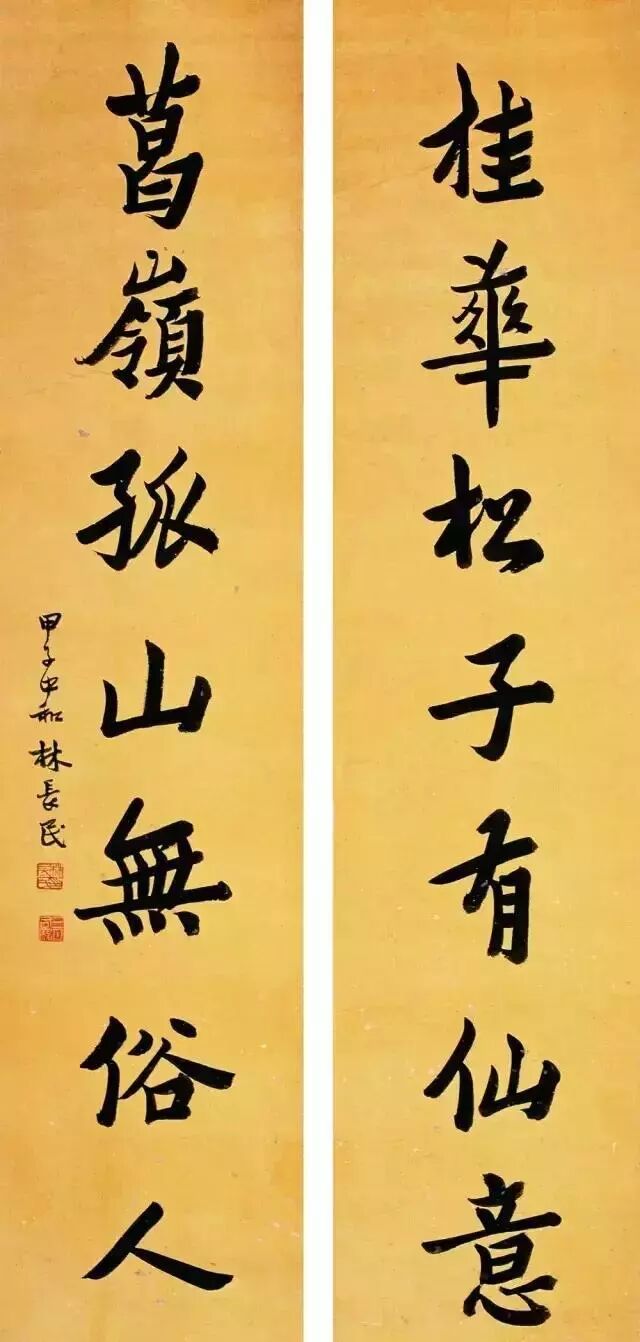 桂華松子有仙意
葛嶺孤山無俗人
甲子中和 林長民